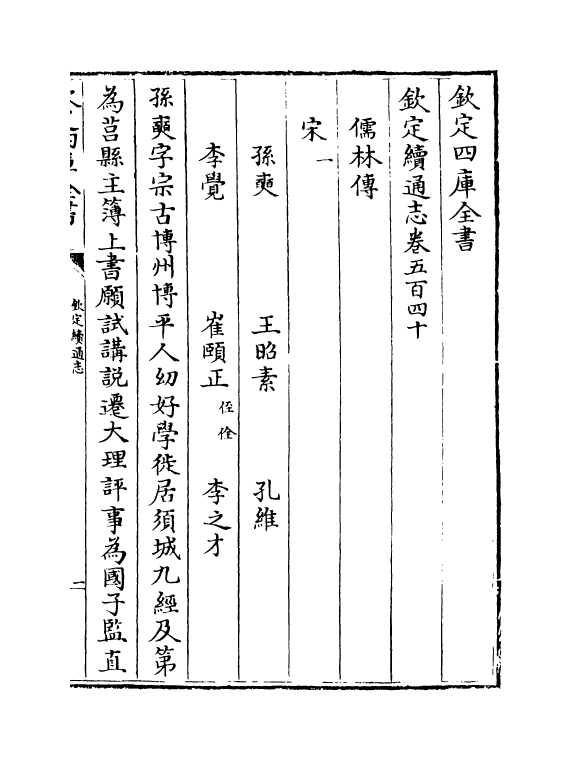 欽定四庫全書
欽定續通志卷五百四十
儒林傳
宋一
孫奭 王昭素 孔維
李覺 崔頤正 侄佺 李之才
孫奭字宗古博州博平人幼好學徙居須城九經及第
為莒縣主簿上書願試講説遷大理評事為國子監直
欽定續通志